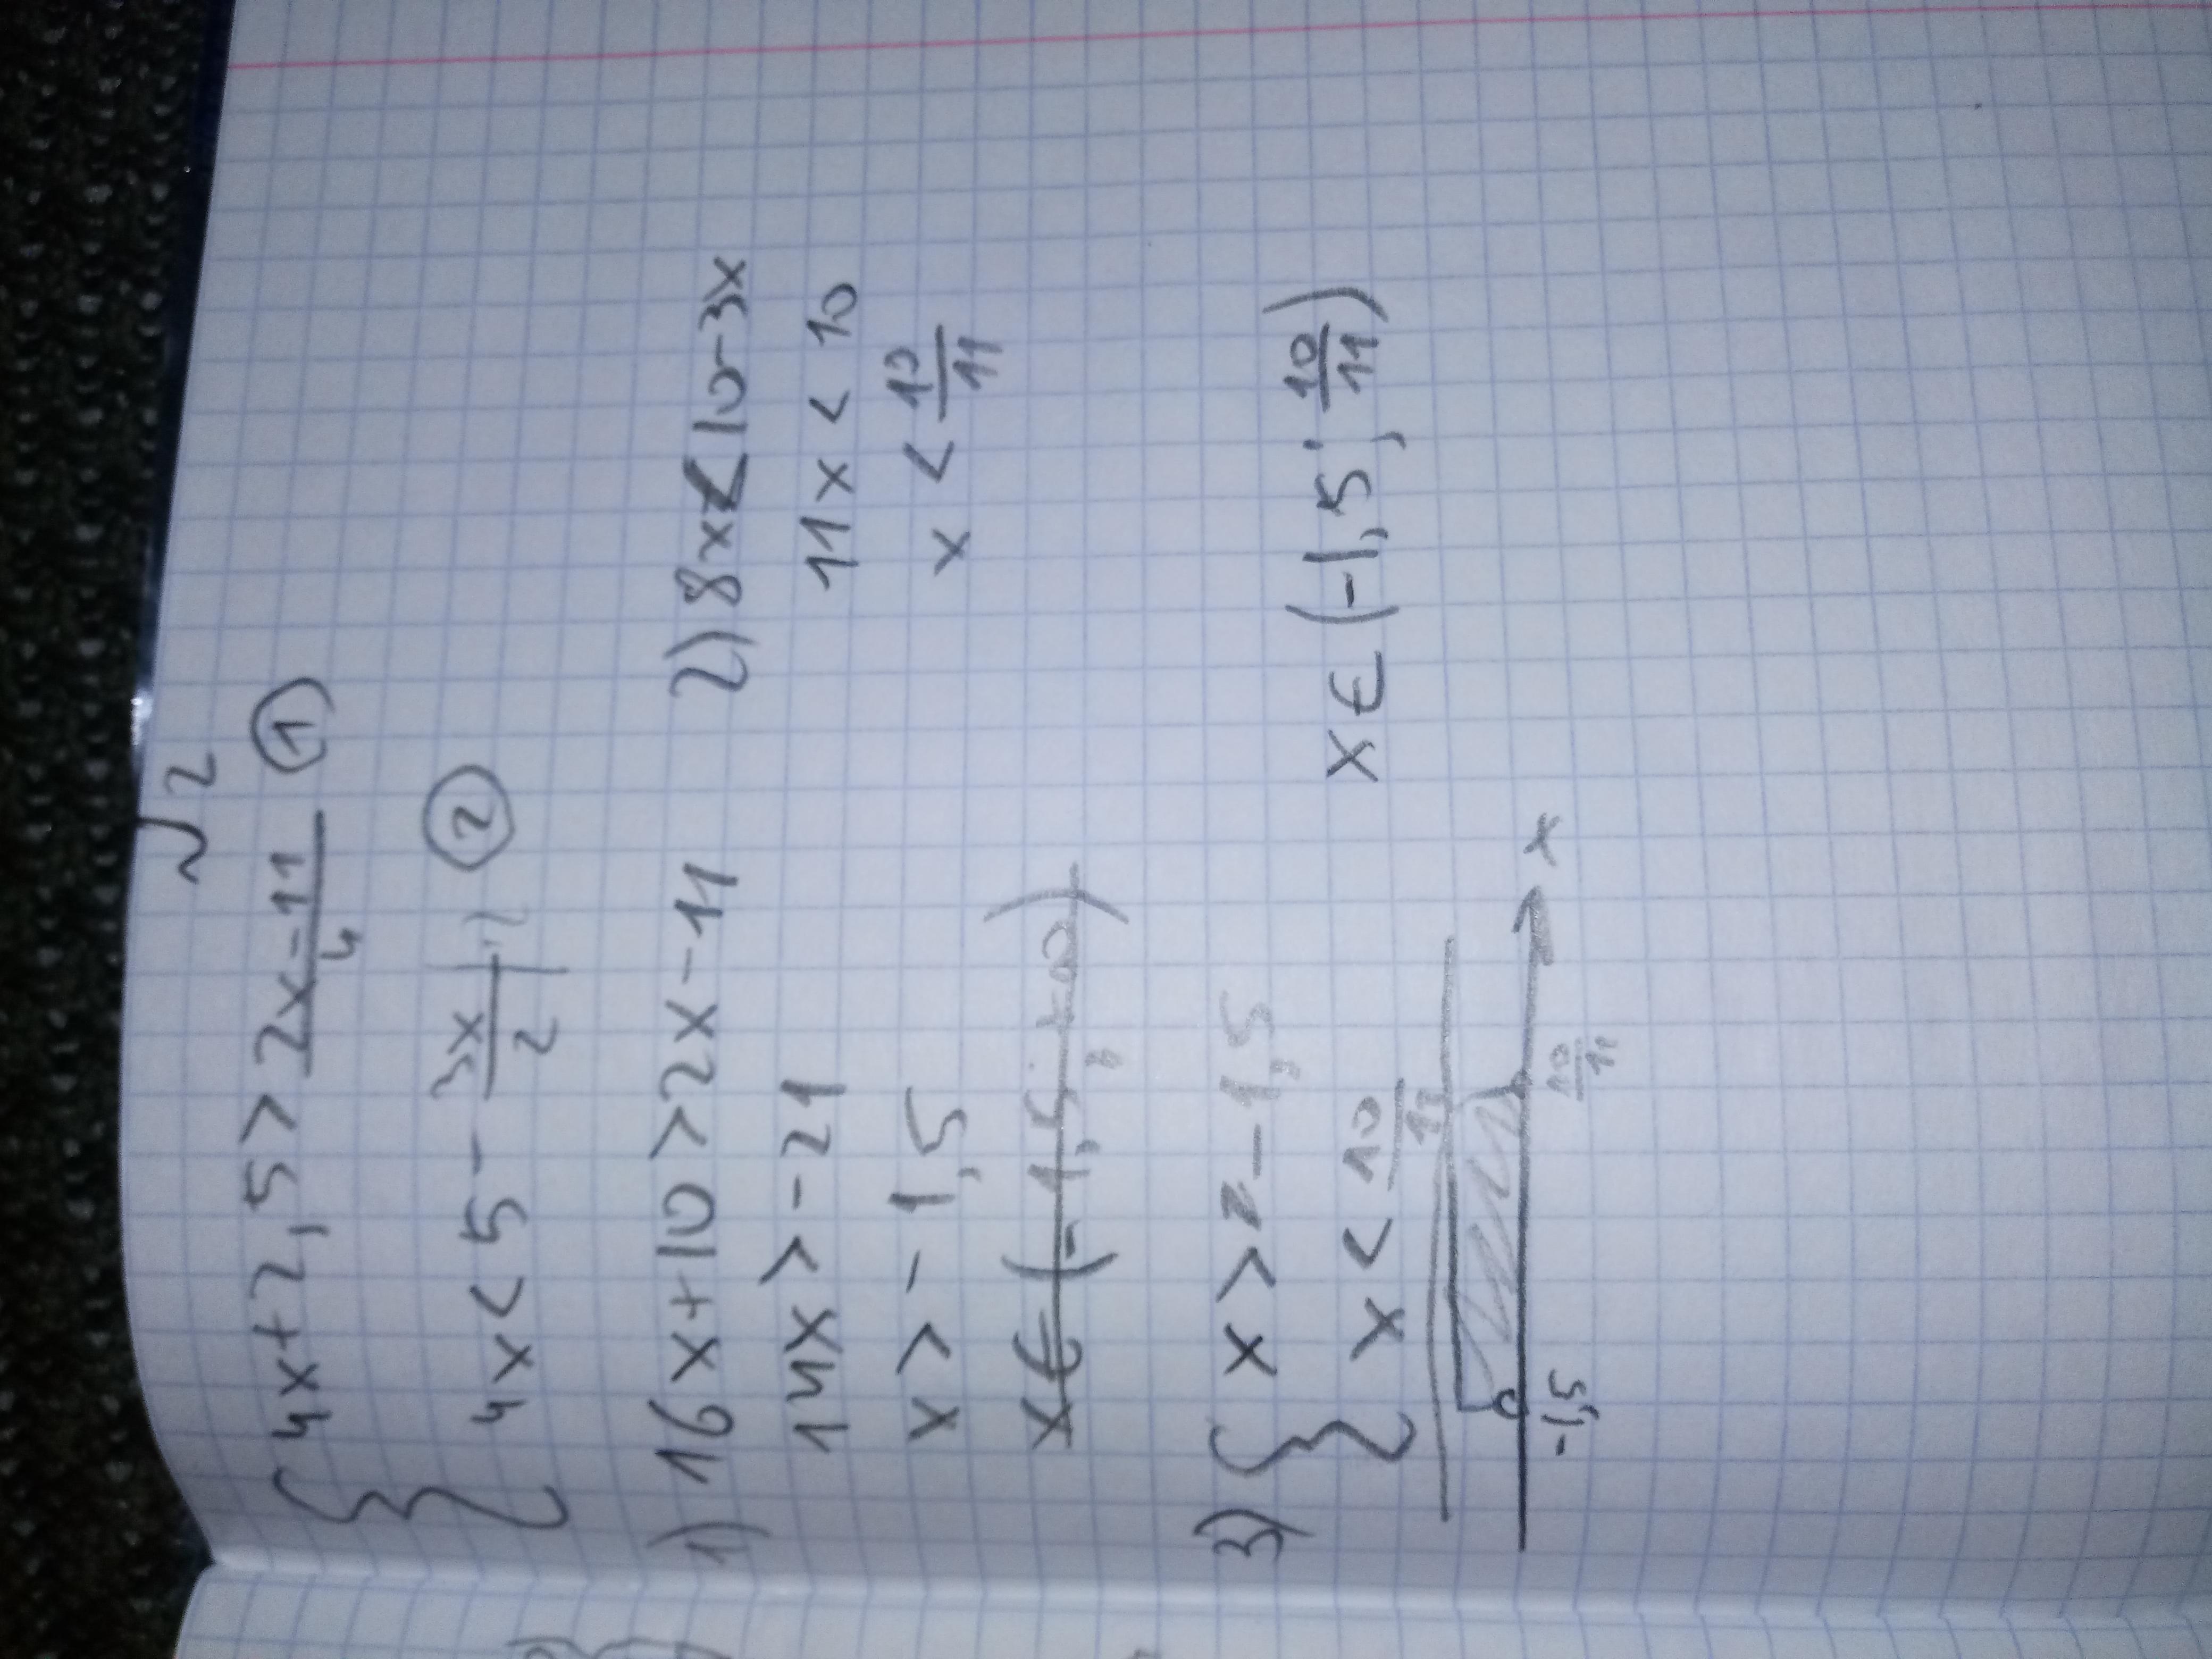 №2
4x+2,5>2x-11/4 ①
4x<5-3x/2 ②
1) 16x+10>2x-11
14x>-21
x>-1,5
x∈(-1,5;+∞)
2) 8x<10-3x
11x<10
x<10/11
3) x>-1,5
x<10/11
-1,5 10/11 x
x∈(-1,5;10/11)